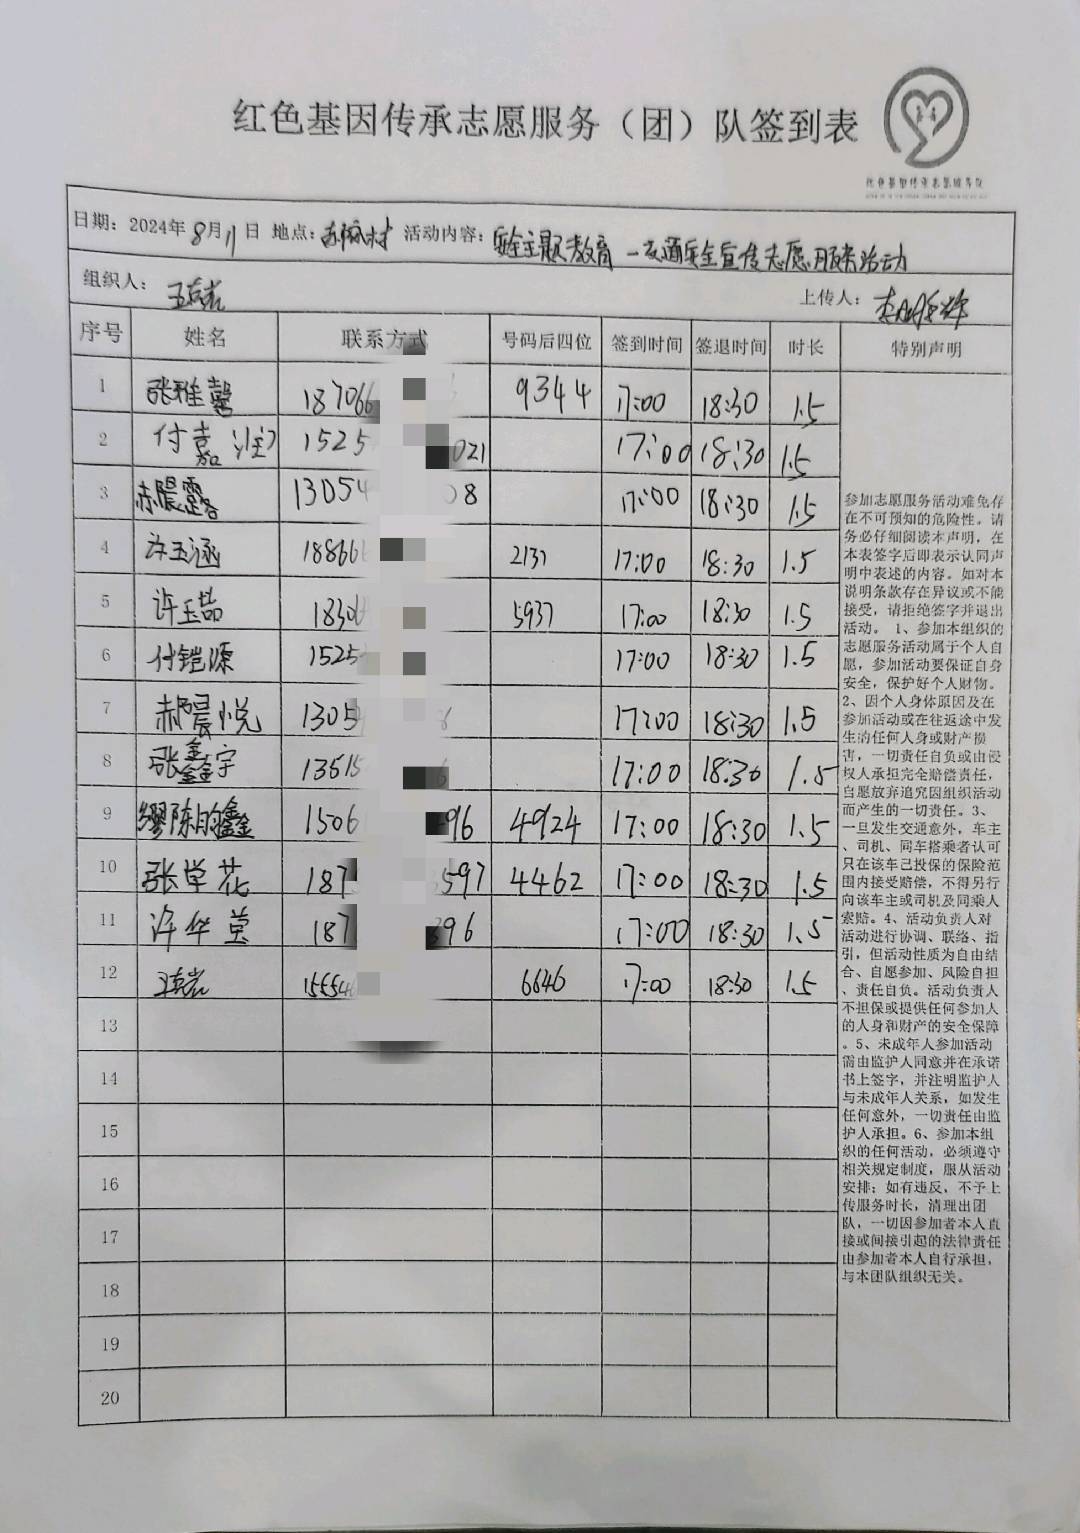 红色基因传承志愿服务（团）队签到表
红色基因传承志愿服务队
日期：2024年8月11日 地点： 村 活动内容：安全主题教育—交通安全宣传志愿服务活动
组织人： 上传人：
序号 姓名 联系方式 号码后四位 签到时间 签退时间 时长 特别声明
1 张雅馨 187066 9344 17:00 18:30 1.5
2 付嘉 1525 021 17:00 18:30 1.5
3 赤晨露 13054 08 17:00 18:30 1.5
4 许玉涵 18866 2137 17:00 18:30 1.5
5 许玉喆 1830 5937 17:00 18:30 1.5
6 付铠源 1525 17:00 18:30 1.5
7 赤晨悦 1305 17:00 18:30 1.5
8 张鑫宇 13615 17:00 18:30 1.5
9 缪陈 鑫 1506 96 4924 17:00 18:30 1.5
10 张学花 187 597 4462 17:00 18:30 1.5
11 许华莹 187 396 17:00 18:30 1.5
12 15554 6646 17:00 18:30 1.5
13
14
15
16
17
18
19
20
参加志愿服务活动难免存
在不可预知的危险性。请
务必仔细阅读本声明，在
本表签字后即表示认同声
明中表述的内容。如对本
说明条款存在异议或不能
接受，请拒绝签字并退出
活动。 1、参加本组织的
志愿服务活动属于个人自
愿，参加活动要保证自身
安全，保护好个人财物。
2、因个人身体原因及在
参加活动或在往返途中发
生的任何人身或财产损
害，一切责任自负或由侵
权人承担完全赔偿责任，
自愿放弃追究因组织活动
而产生的一切责任。3、
一旦发生交通意外，车主
、司机、同车搭乘者认可
只在该车已投保的保险范
围内接受赔偿，不得另行
向该车主或司机及同乘人
索赔。4、活动负责人对
活动进行协调、联络、指
引，但活动性质为自由结
合、自愿参加、风险自担
、责任自负。活动负责人
不担保或提供任何参加人
的人身和财产的安全保障
。5、未成年人参加活动
需由监护人同意并在承诺
书上签字，并注明监护人
与未成年人关系，如发生
任何意外，一切责任由监
护人承担。6、参加本组
织的任何活动，必须遵守
相关规定制度，服从活动
安排；如有违反，不予上
传服务时长，清理出团
队，一切因参加者本人直
接或间接引起的法律责任
由参加者本人自行承担，
与本团队组织无关。